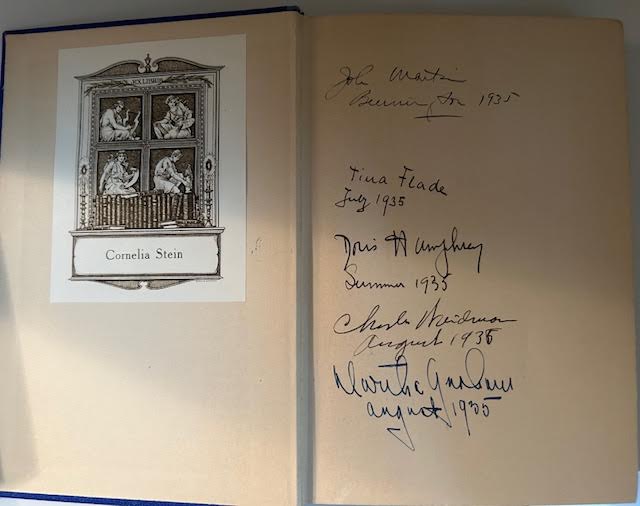 EX LIBRIS
Cornelia Stein
John Martin
Bennington 1935
Tina Flade
July 1935
Doris Humphrey
Summer 1935
Charles Weidman
August 1935
Martha Graham
august 1935